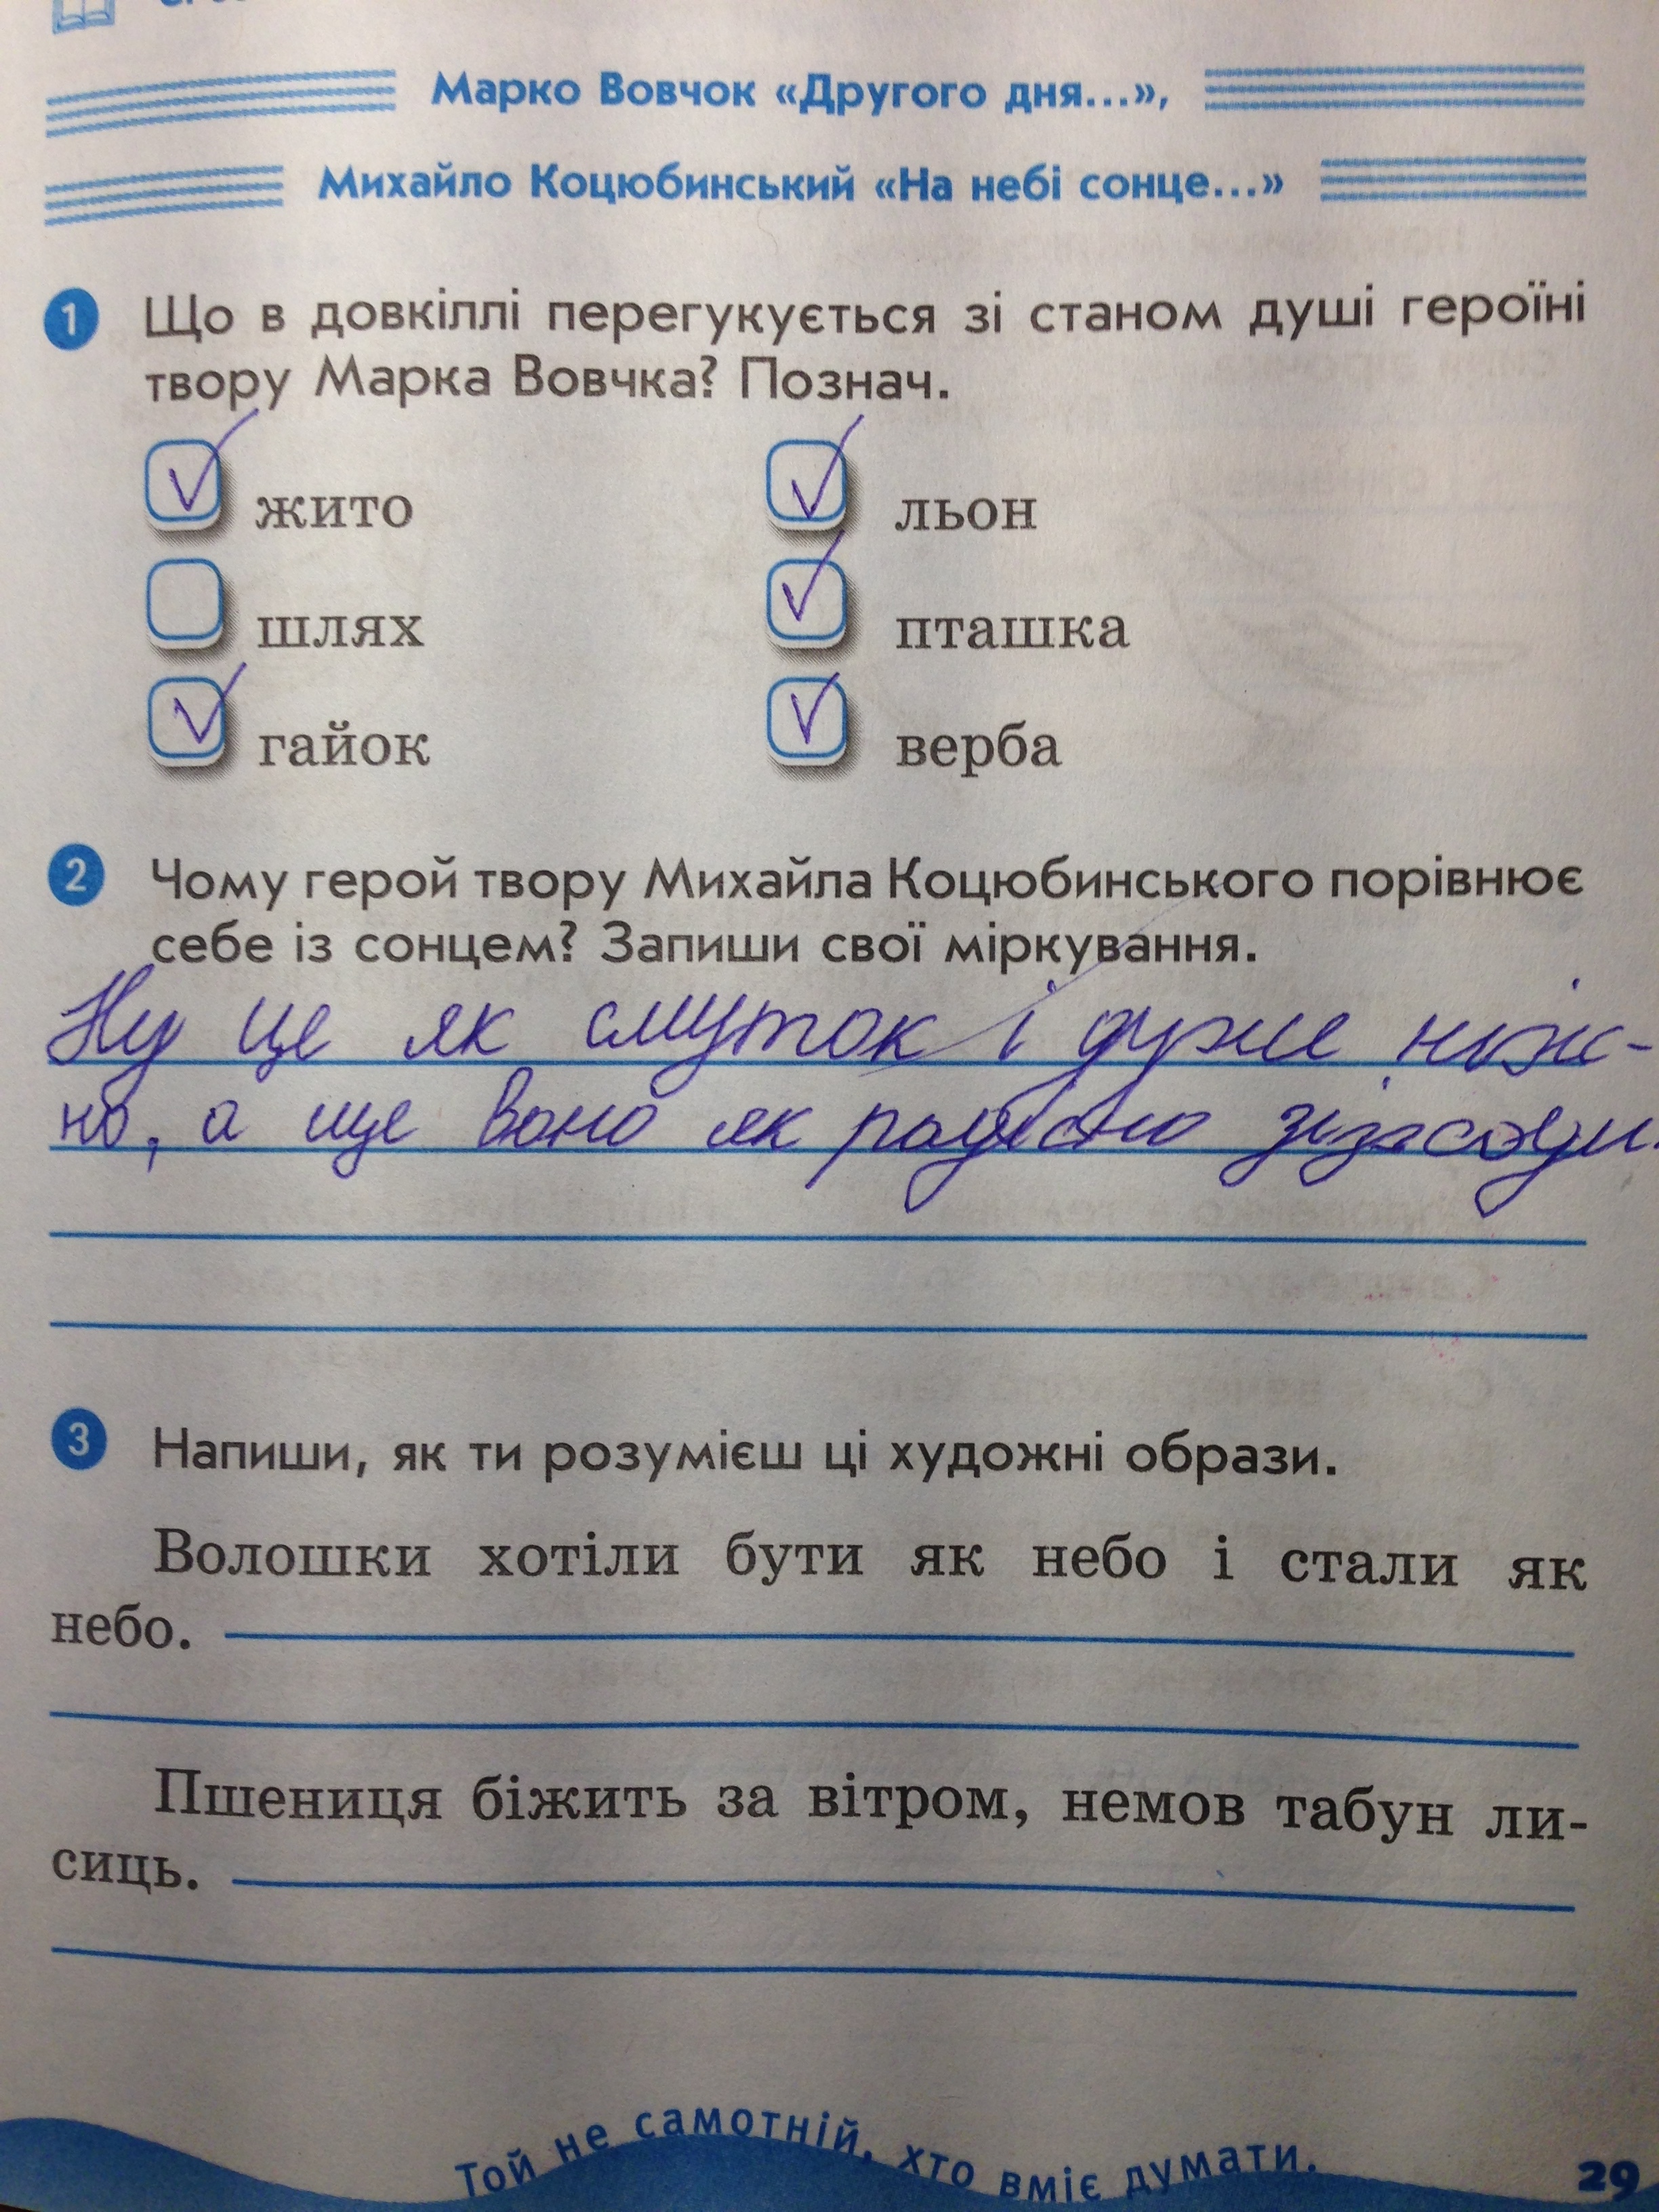 Марко Вовчок «Другого дня...»,
Михайло Коцюбинський «На небі сонце...»
1 Що в довкіллі перегукується зі станом душі героїні
твору Марка Вовчка? Познач.
жито льон
шлях пташка
гайок верба
2 Чому герой твору Михайла Коцюбинського порівнює
себе із сонцем? Запиши свої міркування.
Ну це як смуток і дуже ніж-
но, а ще воно як радістю
3 Напиши, як ти розумієш ці художні образи.
Волошки хотіли бути як небо і стали як
небо.
Пшениця біжить за вітром, немов табун ли-
сиць.
Той не самотній, хто вміє думати.
29